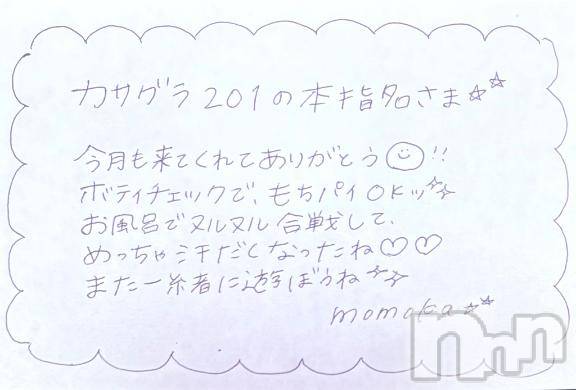 カサグラ201の本指名さま☆☆
今月も来てくれてありがとう!!
ボディチェックで、もちパイOKッ☆☆
お風呂でヌルヌル合戦して、
めっちゃ汗だくなったね♡♡
また一緒に遊ぼうね☆☆
momoka☆☆
nnn